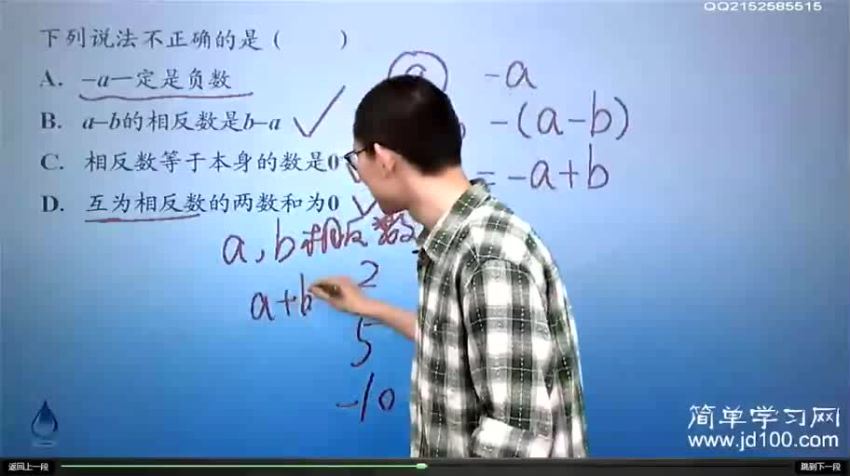 QQ2152585515
下列说法不正确的是（ ）
A. -a一定是负数
B. a-b的相反数是b-a
C. 相反数等于本身的数是0
D. 互为相反数的两数和为0
a -a
-(a-b)
=-a+b
a,b相反数
2
a+b
5
-10
简单学习网
www.jd100.com
返回上一段
跳到下一段